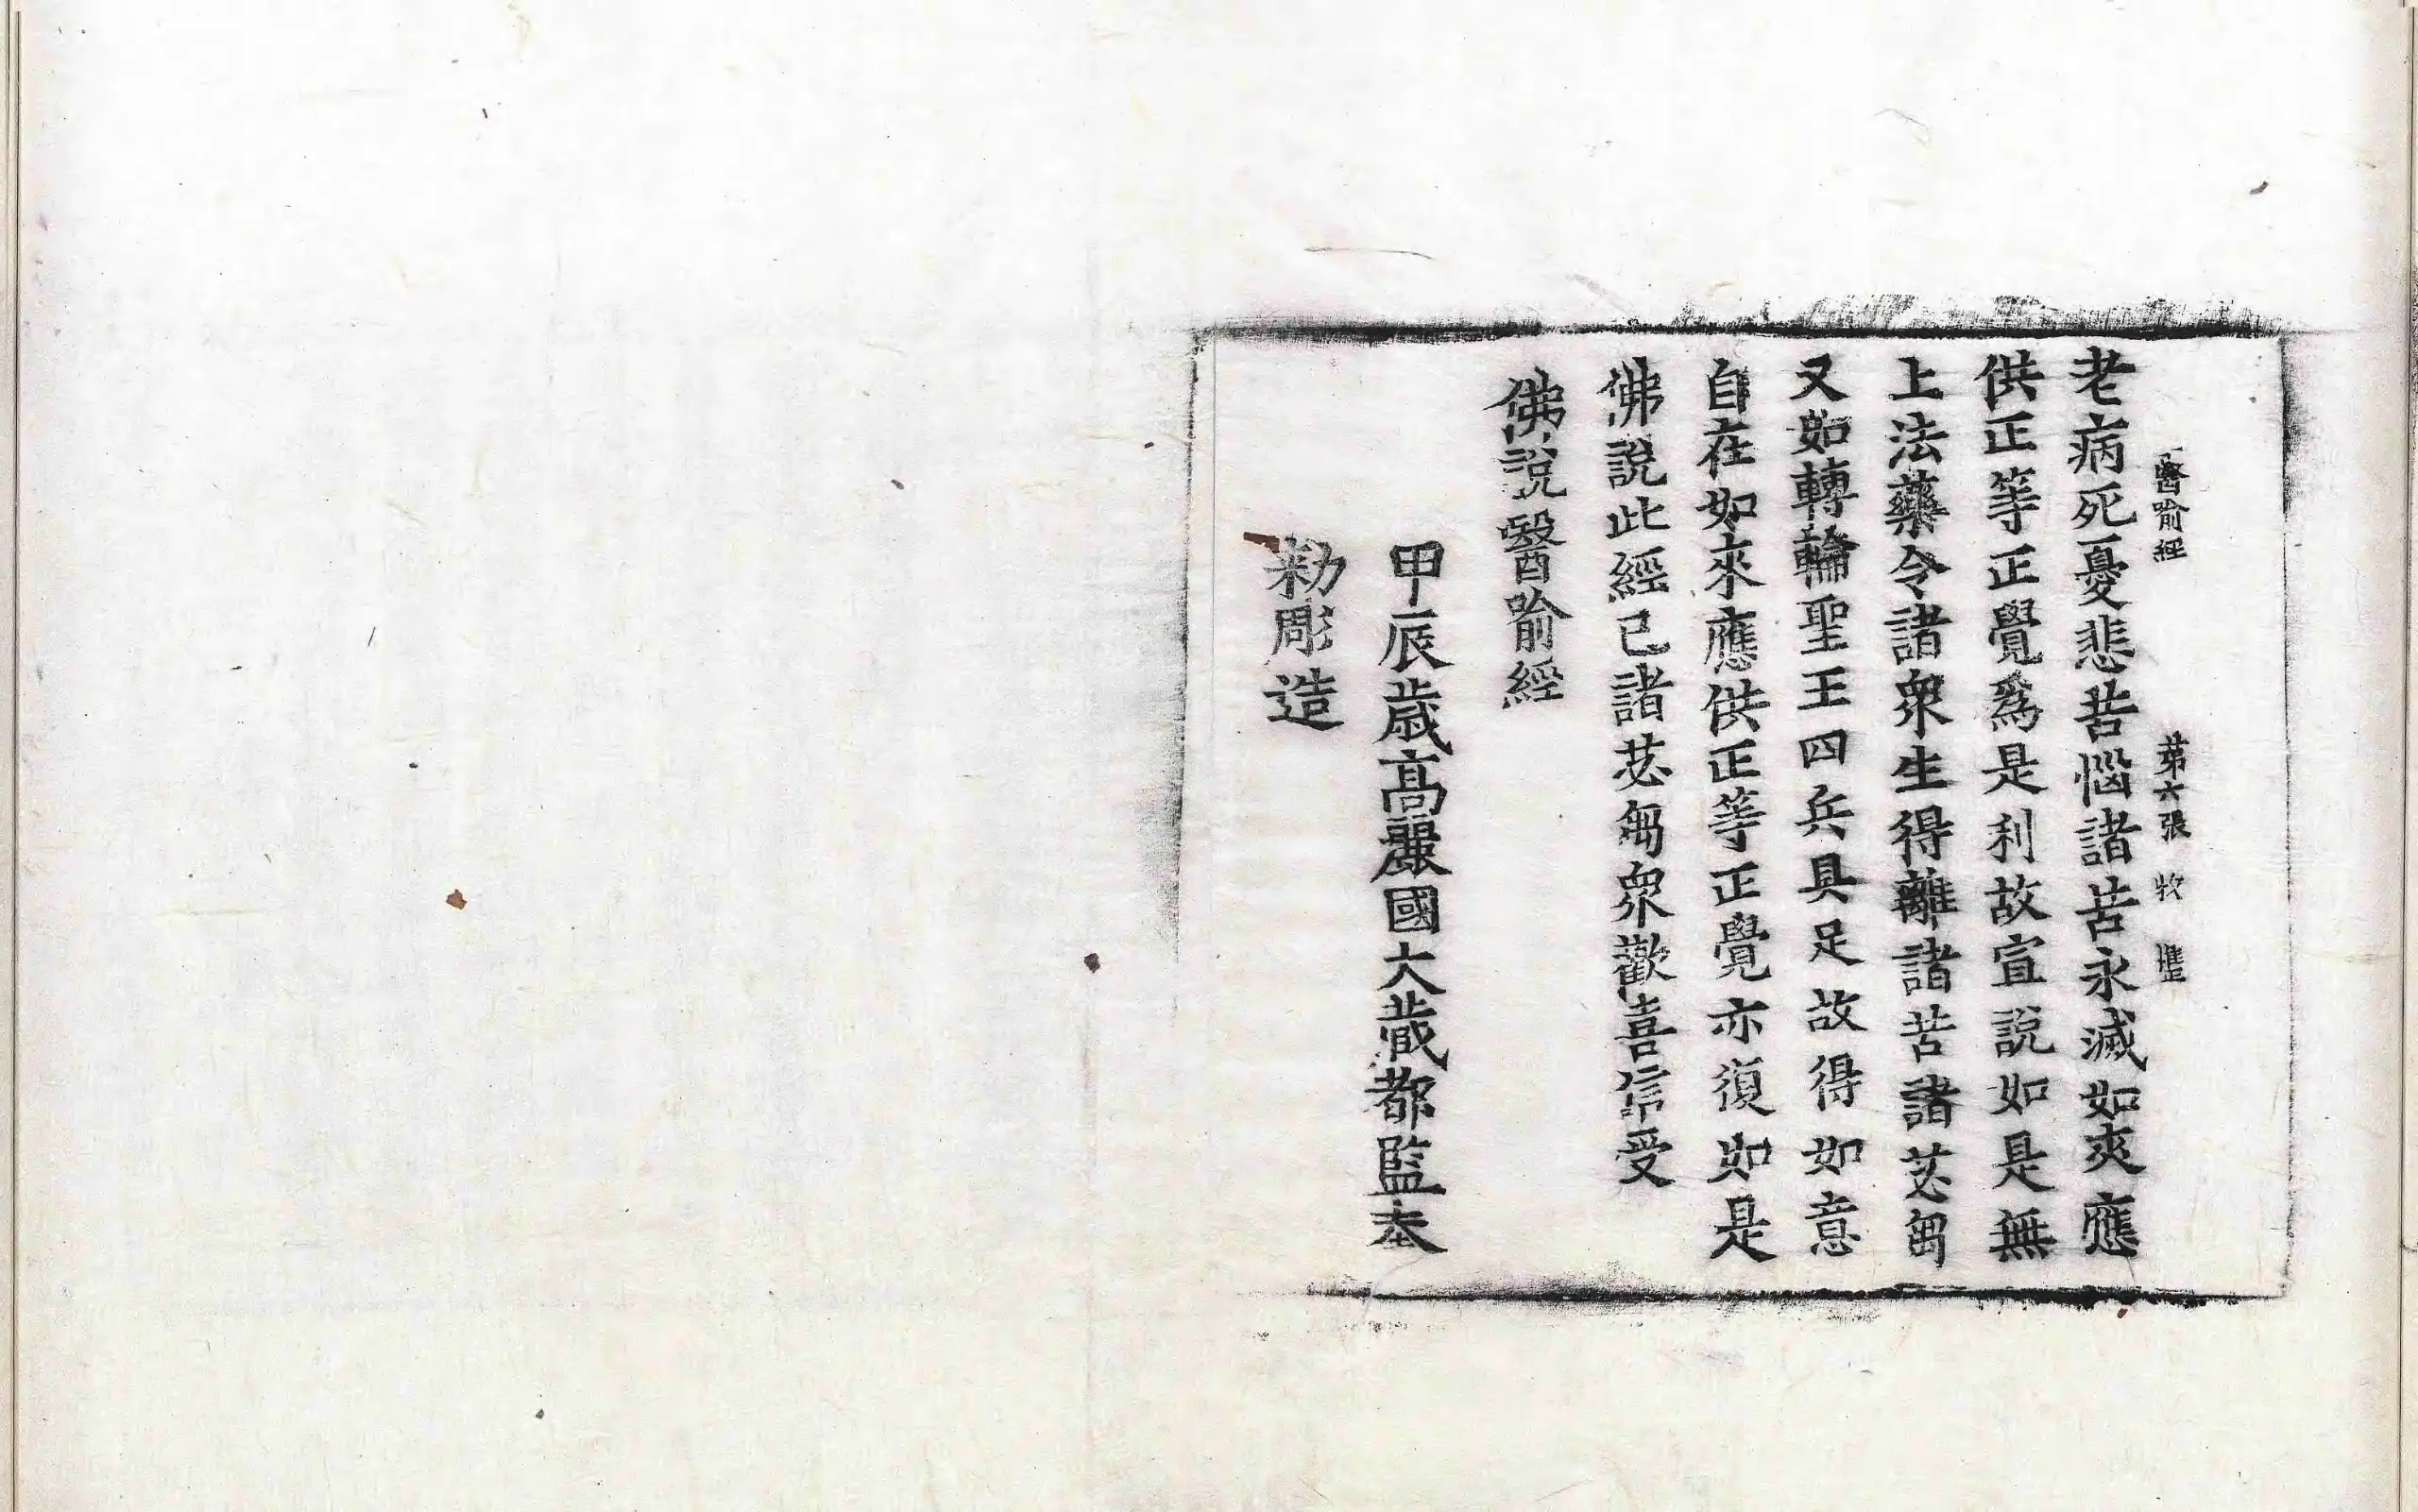 醫喻經 第六張 牧
老病死憂悲苦惱諸苦永滅如來應
供正等正覺爲是利故宣說如是無
上法藥令諸衆生得離諸苦諸苾芻
又如轉輪聖王四兵具足故得如意
自在如來應供正等正覺亦復如是
佛說此經已諸苾芻衆歡喜信受
佛說醫喻經
甲辰歲高麗國大藏都監奉
勑彫造